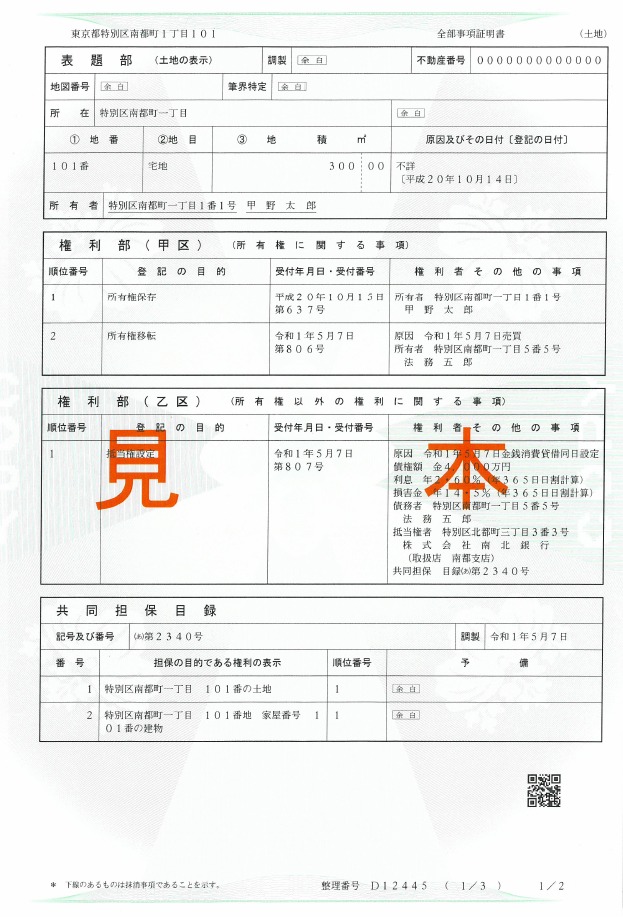 東京都特別区南都町１丁目１０１　全部事項証明書　（土地）
表　題　部　（土地の表示）　調製　余白　不動産番号　００００００００００００００
地図番号　余白　筆界特定　余白
所　在　特別区南都町一丁目　余白
①　地　番　②地　目　③　地　積　㎡　原因及びその日付〔登記の日付〕
１０１番　宅地　３００　００　不詳
〔平成２０年１０月１４日〕
所　有　者　特別区南都町一丁目１番１号　甲　野　太　郎
権　利　部　（　甲　区　）　（所　有　権　に　関　す　る　事　項）
順位番号　登　記　の　目　的　受付年月日・受付番号　権　利　者　そ　の　他　の　事　項
１　所有権保存　平成２０年１０月１５日　所有者　特別区南都町一丁目１番１号
第６３７号　甲　野　太　郎
２　所有権移転　令和１年５月７日　原因　令和１年５月７日売買
第８０６号　所有者　特別区南都町一丁目５番５号
法　務　五　郎
権　利　部　（　乙　区　）　（所　有　権　以　外　の　権　利　に　関　す　る　事　項）
順位番号　登　記　の　目　的　受付年月日・受付番号　権　利　者　そ　の　他　の　事　項
１　抵当権設定　令和１年５月７日　原因　令和１年５月７日金銭消費貸借同日設定
第８０７号　債権額　金４，０００万円
利息　年２・６０％（年３６５日日割計算）
損害金　年１４・５％（年３６５日日割計算）
債務者　特別区南都町一丁目５番５号
法　務　五　郎
抵当権者　特別区北都町三丁目３番３号
株　式　会　社　南　北　銀　行
（取扱店　南都支店）
共同担保　目録㋐第２３４０号
見本
共　同　担　保　目　録
記号及び番号　㋐第２３４０号　調製　令和１年５月７日
番　号　担保の目的である権利の表示　順位番号　予　備
１　特別区南都町一丁目　１０１番の土地　１　余白
２　特別区南都町一丁目　１０１番地　家屋番号　１　１　余白
０１番の建物
＊　下線のあるものは抹消事項であることを示す。　整理番号　Ｄ１２４４５　（　１／３　）　１／２